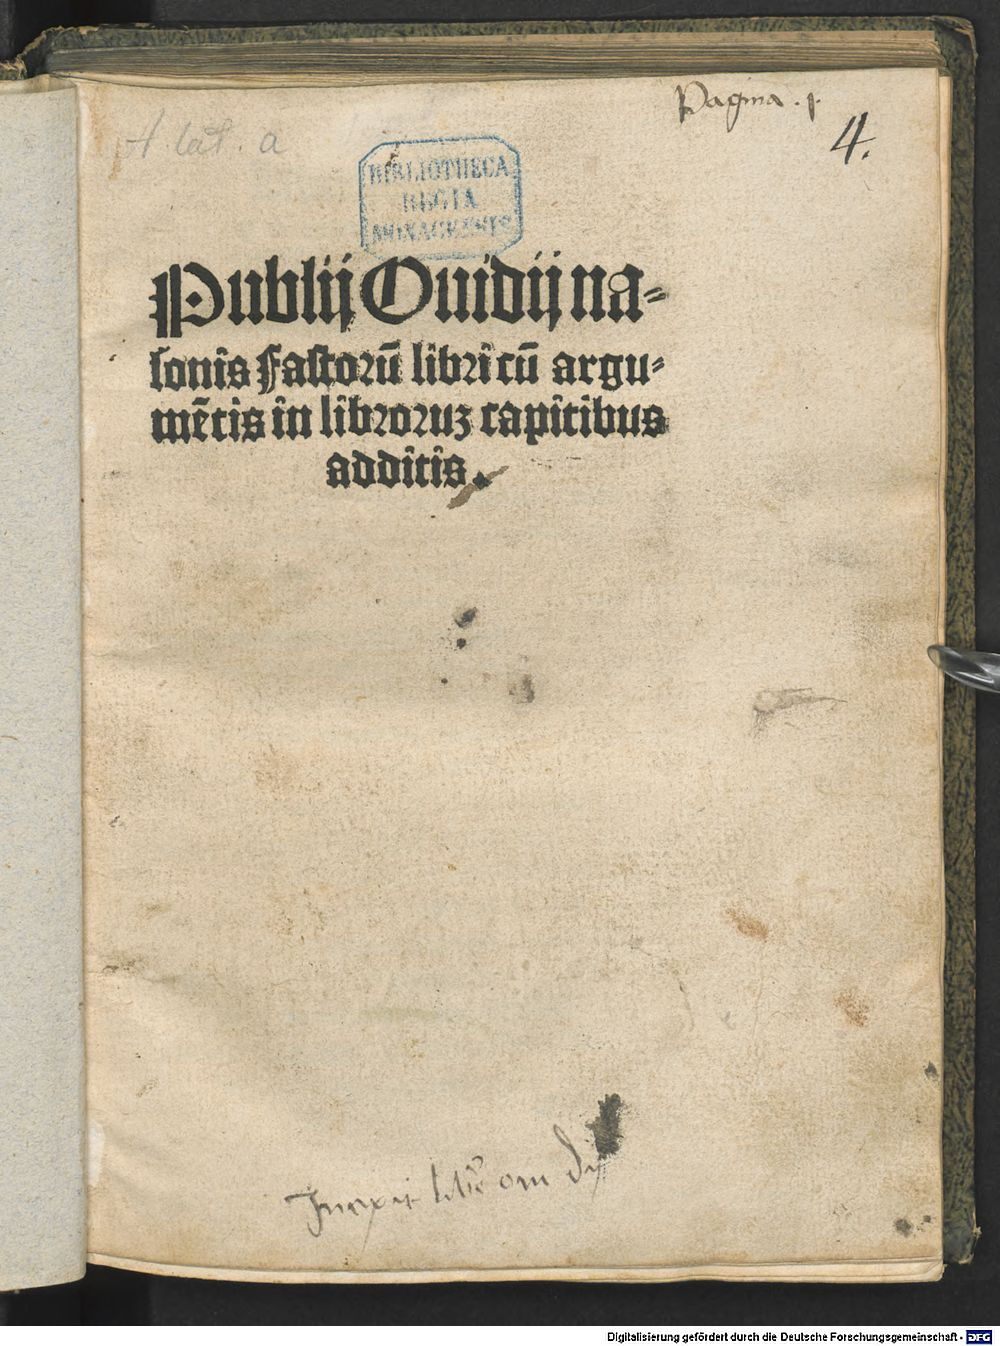 Pagina . 1.
4.
A lat. a
BIBLIOTHECA
REGIA
MONACENSIS
Publij Ouidij na-
sonis Fastorū libri cū argu-
mētis in libroruꝫ capitibus
additis.
Incipit liber ovi dij
Digitalisierung gefördert durch die Deutsche Forschungsgemeinschaft - DFG